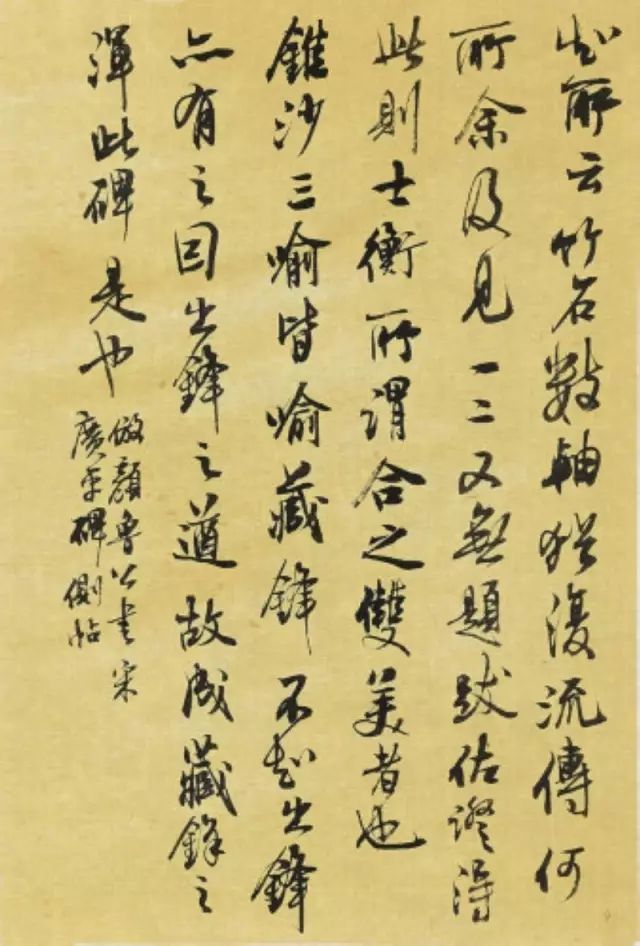 云竹石數軸猶復流傳何
所余及見一二又無題跋佐證得
此則士衡所謂合之雙美者也
錐沙三喻皆喻藏鋒不知出鋒
亦有之因出鋒之道故成藏鋒之
渾此碑是也
倣顏魯公書宋
廣平碑側帖